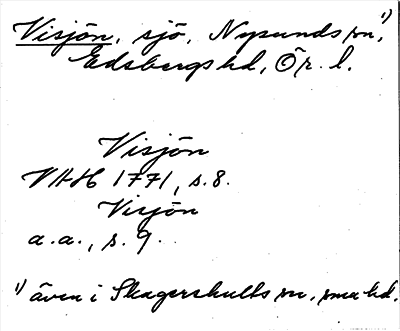 Visjön, sjö, Nysunds sn¹⁾,
Edsbergs hd, Ör. l.
Visjön
VAH 1771, s.8.
Visjön
a.a., s. 9.
¹⁾ även i Skagershults sn, sma hd.